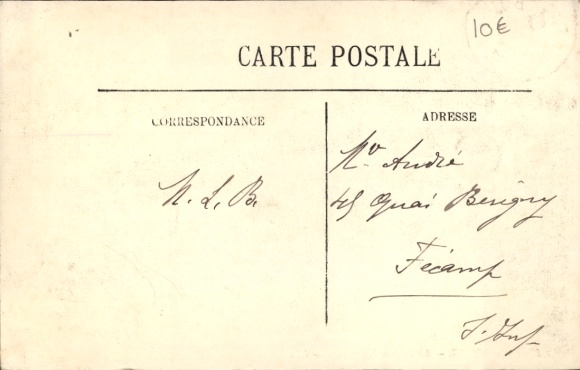 10€
CARTE POSTALE
CORRESPONDANCE
ADRESSE
N. L. B.
Mr André
45 Quai Berigny
Fécamp
S. Inf